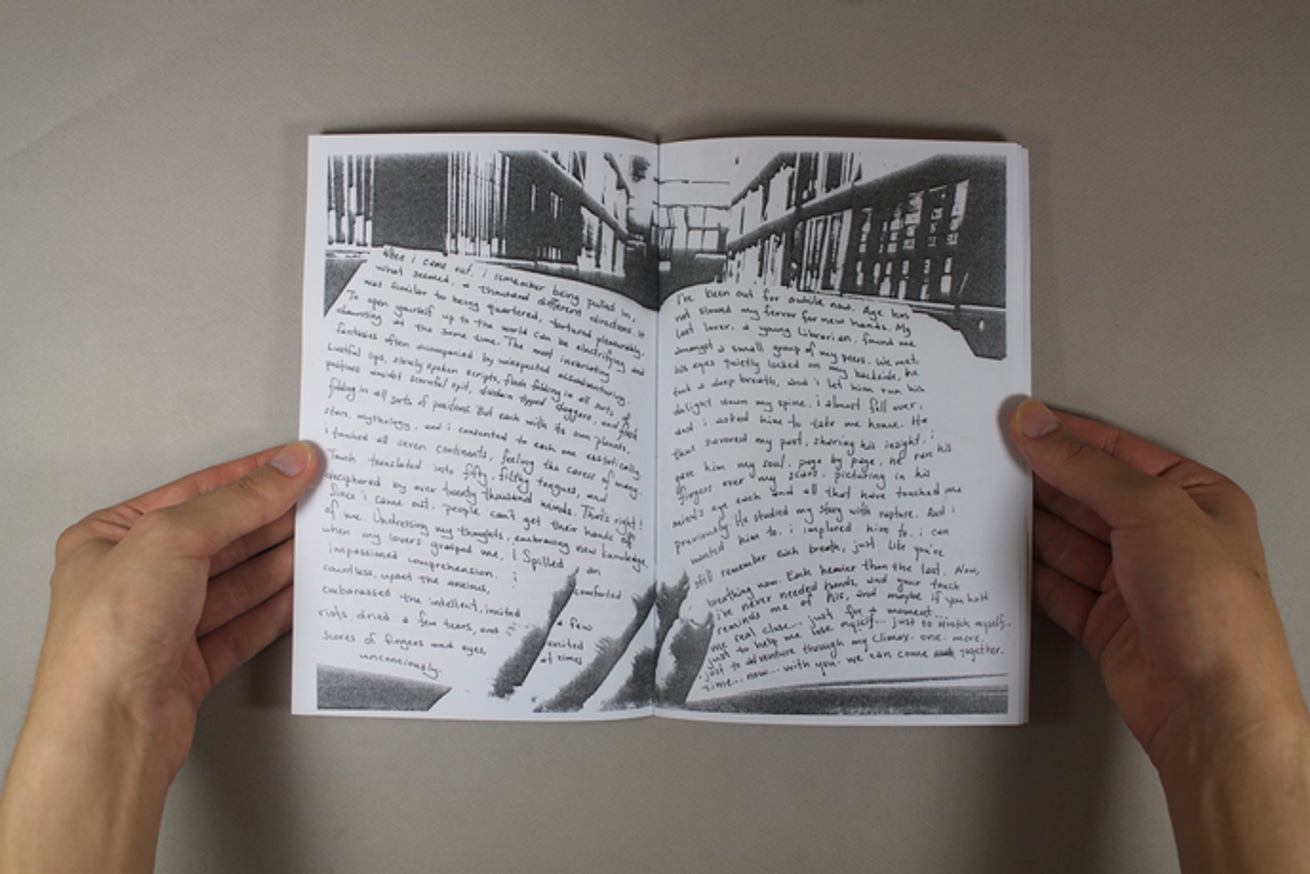 When i came out, i remember being pulled in,
what seemed, a thousand different directions. it
was similar to being quartered, tortured pleasurably.
To open yourself up to the world can be electrifying and
daunting at the same time. The most invariating
fantasies often accompanied by unexpected misadventuring.
Lustful lips, slowly spoken scripts, flesh folding in all sorts of
positions amidst scornful spit, disdain tipped daggers, and flesh
folding in all sorts of positions. But each with its own planets,
stars, mythology, and i consented to each one esstatically.
i touched all seven continents, feeling the caress of many.
Touch translated into fifty, filthy tongues, and
deciphered by over twenty thousand minds. That's right!
Since i came out, people can't get their hands off
of me. Undressing my thoughts, embracing new knowledge,
when my lovers grasped me. I Spilled on
impassioned comprehension. i
countless, upset the anxious, comforted
embarassed the intellect, invited
riots, dried a few tears, and a few
scores of fingers and eyes, united
unconsciously. at times
I've been out for awhile now. Age has
not slowed my fervor for new hands. My
last lover, a young librarian, found me
amongst a small group of my peers. We met.
his eyes quietly locked on my backside, he
took a deep breath, and i let him run his
delight down my spine. i almost fell over,
and i asked him to take me home. He
thus savored my past, sharing his insight, i
gave him my soul, page by page, he ran his
fingers over my scars, picturing in his
mind's eye each and all that have touched me
previously. He studied my story with rapture. And i
wanted him to, i implored him to. i can
still remember each breath, just like you're
breathing now. Each heavier than the last. Now,
i've never needed hands, and your touch
reminds me of his, and maybe if you hold
me real close... just for a moment...
just to help me lose myself... just to stretch myself...
just to adventure through my climax. one. more.
time... now... with you. we can come together.